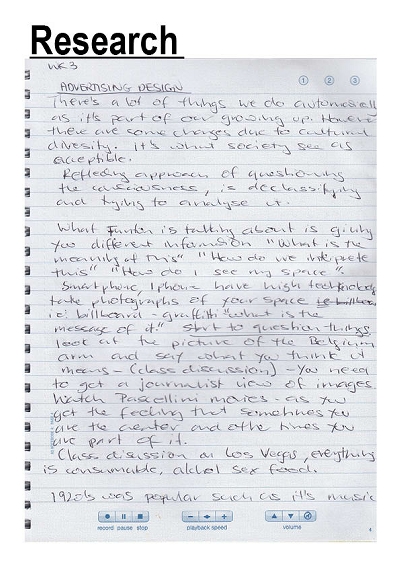 Research
WK 3
1 2 3
ADVERTISING DESIGN
There's a lot of things we do automatically
as it's part of our growing up. However
there are some changes due to cultural
divesity. it's what society see as
acceptible.
Reflecting approach of questioning
the consciousness, is declassifying
and trying to analyse it.
What is talking about is giving
you different information "What is the
meaning of this" "How do we inteprete
this" "How do I see my space".
Smartphone, Iphone have high tech
take photographs of your space
ie: billboard - graffitti "what is the
message of it." Start to question things
look at the picture of the Belgium
arm and say what you think it
means - (class discussion) - You need
to get a journalist view of images
Watch Pascellini movies - as you
get the feeling that sometimes you
are the and other times you
are part of it.
Class discussion on Los Vegas, everything
is consumable, alchol sex food.
1920's was popular such as it's music
record pause stop playback speed volume